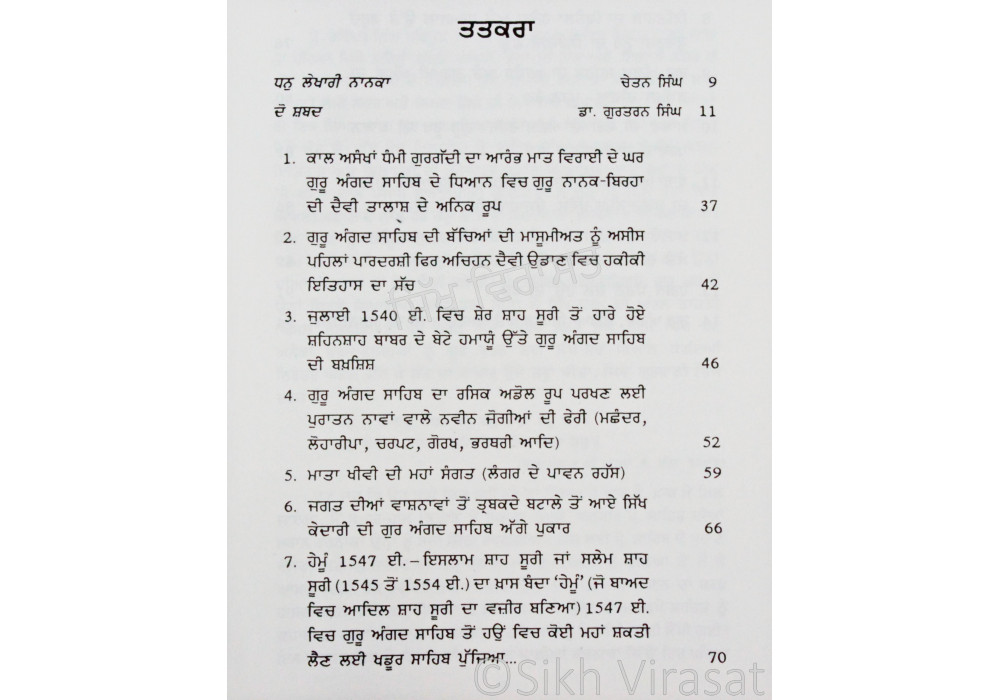 ਤਤਕਰਾ
ਧਨੁ ਲੇਖਾਰੀ ਨਾਨਕਾ ਚੇਤਨ ਸਿੰਘ 9
ਦੋ ਸ਼ਬਦ ਡਾ. ਗੁਰਤਰਨ ਸਿੰਘ 11
1. ਕਾਲ ਅਸੰਖਾਂ ਧੰਮੀ ਗੁਰਗੱਦੀ ਦਾ ਆਰੰਭ ਮਾਤ ਵਿਰਾਈ ਦੇ ਘਰ
ਗੁਰੂ ਅੰਗਦ ਸਾਹਿਬ ਦੇ ਧਿਆਨ ਵਿਚ ਗੁਰੂ ਨਾਨਕ-ਬਿਰਹਾ
ਦੀ ਦੈਵੀ ਤਾਲਾਸ਼ ਦੇ ਅਨਿਕ ਰੂਪ 37
2. ਗੁਰੂ ਅੰਗਦ ਸਾਹਿਬ ਦੀ ਬੱਚਿਆਂ ਦੀ ਮਾਸੂਮੀਅਤ ਨੂੰ ਅਸੀਸ
ਪਹਿਲਾਂ ਪਾਰਦਰਸ਼ੀ ਫਿਰ ਅਚਿਹਨ ਦੈਵੀ ਉਡਾਣ ਵਿਚ ਹਕੀਕੀ
ਇਤਿਹਾਸ ਦਾ ਸੱਚ 42
3. ਜੁਲਾਈ 1540 ਈ. ਵਿਚ ਸ਼ੇਰ ਸ਼ਾਹ ਸੂਰੀ ਤੋਂ ਹਾਰੇ ਹੋਏ
ਸ਼ਹਿਨਸ਼ਾਹ ਬਾਬਰ ਦੇ ਬੇਟੇ ਹਮਾਯੂੰ ਉੱਤੇ ਗੁਰੂ ਅੰਗਦ ਸਾਹਿਬ
ਦੀ ਬਖ਼ਸ਼ਿਸ਼ 46
4. ਗੁਰੂ ਅੰਗਦ ਸਾਹਿਬ ਦਾ ਰਸਿਕ ਅਡੋਲ ਰੂਪ ਪਰਖਣ ਲਈ
ਪੁਰਾਤਨ ਨਾਵਾਂ ਵਾਲੇ ਨਵੀਨ ਜੋਗੀਆਂ ਦੀ ਫੇਰੀ (ਮਛੰਦਰ,
ਲੋਹਾਰੀਪਾ, ਚਰਪਟ, ਗੋਰਖ, ਭਰਥਰੀ ਆਦਿ) 52
5. ਮਾਤਾ ਖੀਵੀ ਦੀ ਮਹਾਂ ਸੰਗਤ (ਲੰਗਰ ਦੇ ਪਾਵਨ ਰਹੱਸ) 59
6. ਜਗਤ ਦੀਆਂ ਵਾਸ਼ਨਾਵਾਂ ਤੋਂ ਤ੍ਰਬਕਦੇ ਬਟਾਲੇ ਤੋਂ ਆਏ ਸਿੱਖ
ਕੇਦਾਰੀ ਦੀ ਗੁਰ ਅੰਗਦ ਸਾਹਿਬ ਅੱਗੇ ਪੁਕਾਰ 66
7. ਹੇਮੂੰ 1547 ਈ.–ਇਸਲਾਮ ਸ਼ਾਹ ਸੂਰੀ ਜਾਂ ਸਲੇਮ ਸ਼ਾਹ
ਸੂਰੀ (1545 ਤੋਂ 1554 ਈ.) ਦਾ ਖ਼ਾਸ ਬੰਦਾ 'ਹੇਮੂੰ' (ਜੋ ਬਾਅਦ
ਵਿਚ ਆਦਿਲ ਸ਼ਾਹ ਸੂਰੀ ਦਾ ਵਜ਼ੀਰ ਬਣਿਆ) 1547 ਈ.
ਵਿਚ ਗੁਰੂ ਅੰਗਦ ਸਾਹਿਬ ਤੋਂ ਹਉਂ ਵਿਚ ਕੋਈ ਮਹਾਂ ਸ਼ਕਤੀ
ਲੈਣ ਲਈ ਖਡੂਰ ਸਾਹਿਬ ਪੁੱਜਿਆ... 70
ਸਿੱਖ ਵਿਰਾਸਤ
©Sikh Virasat